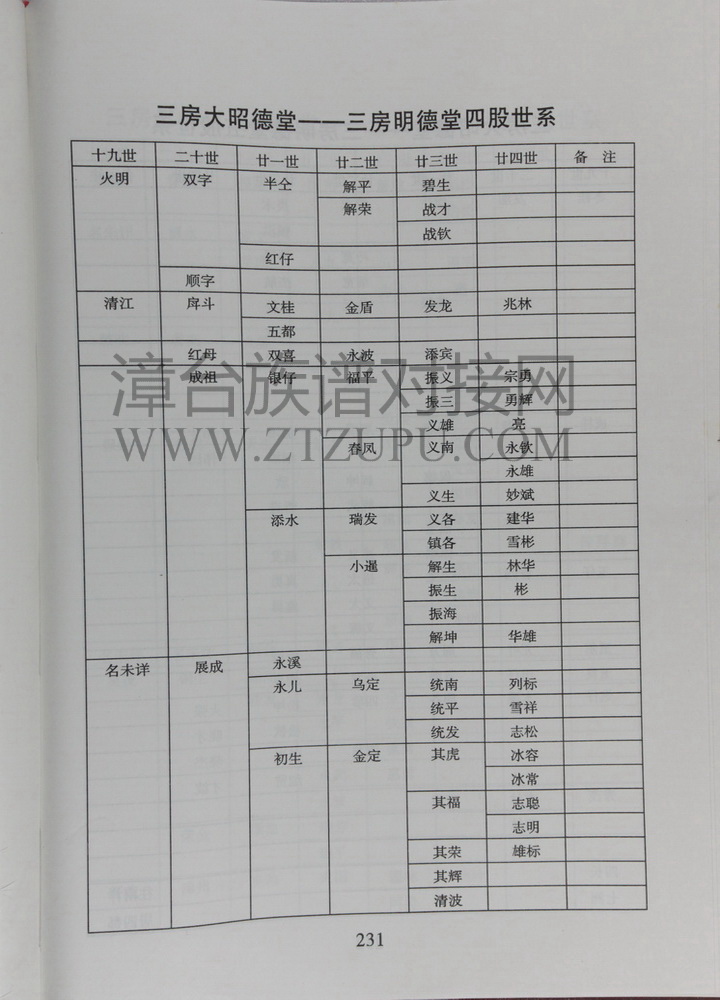 三房大昭德堂——三房明德堂四股世系
十九世 二十世 廿一世 廿二世 廿三世 廿四世 备 注
火明 双字 半仝 解平 碧生
解荣 战才
战钦
红仔
顺字
清江 戽斗 文桂 金盾 发龙 兆林
五都
红母 双喜 永波 添宾
成祖 银仔 福平 振义 宗勇
振三 勇辉
义雄 亮
春凤 义南 永钦
永雄
义生 妙斌
添水 瑞发 义各 建华
镇各 雪彬
小暹 解生 林华
振生 彬
振海
解坤 华雄
名未详 展成 永溪
永儿 乌定 统南 列标
统平 雪祥
统发 志松
初生 金定 其虎 冰容
冰常
其福 志聪
志明
其荣 雄标
其辉
清波
231
漳台族谱对接网
WWW.ZTZUPU.COM